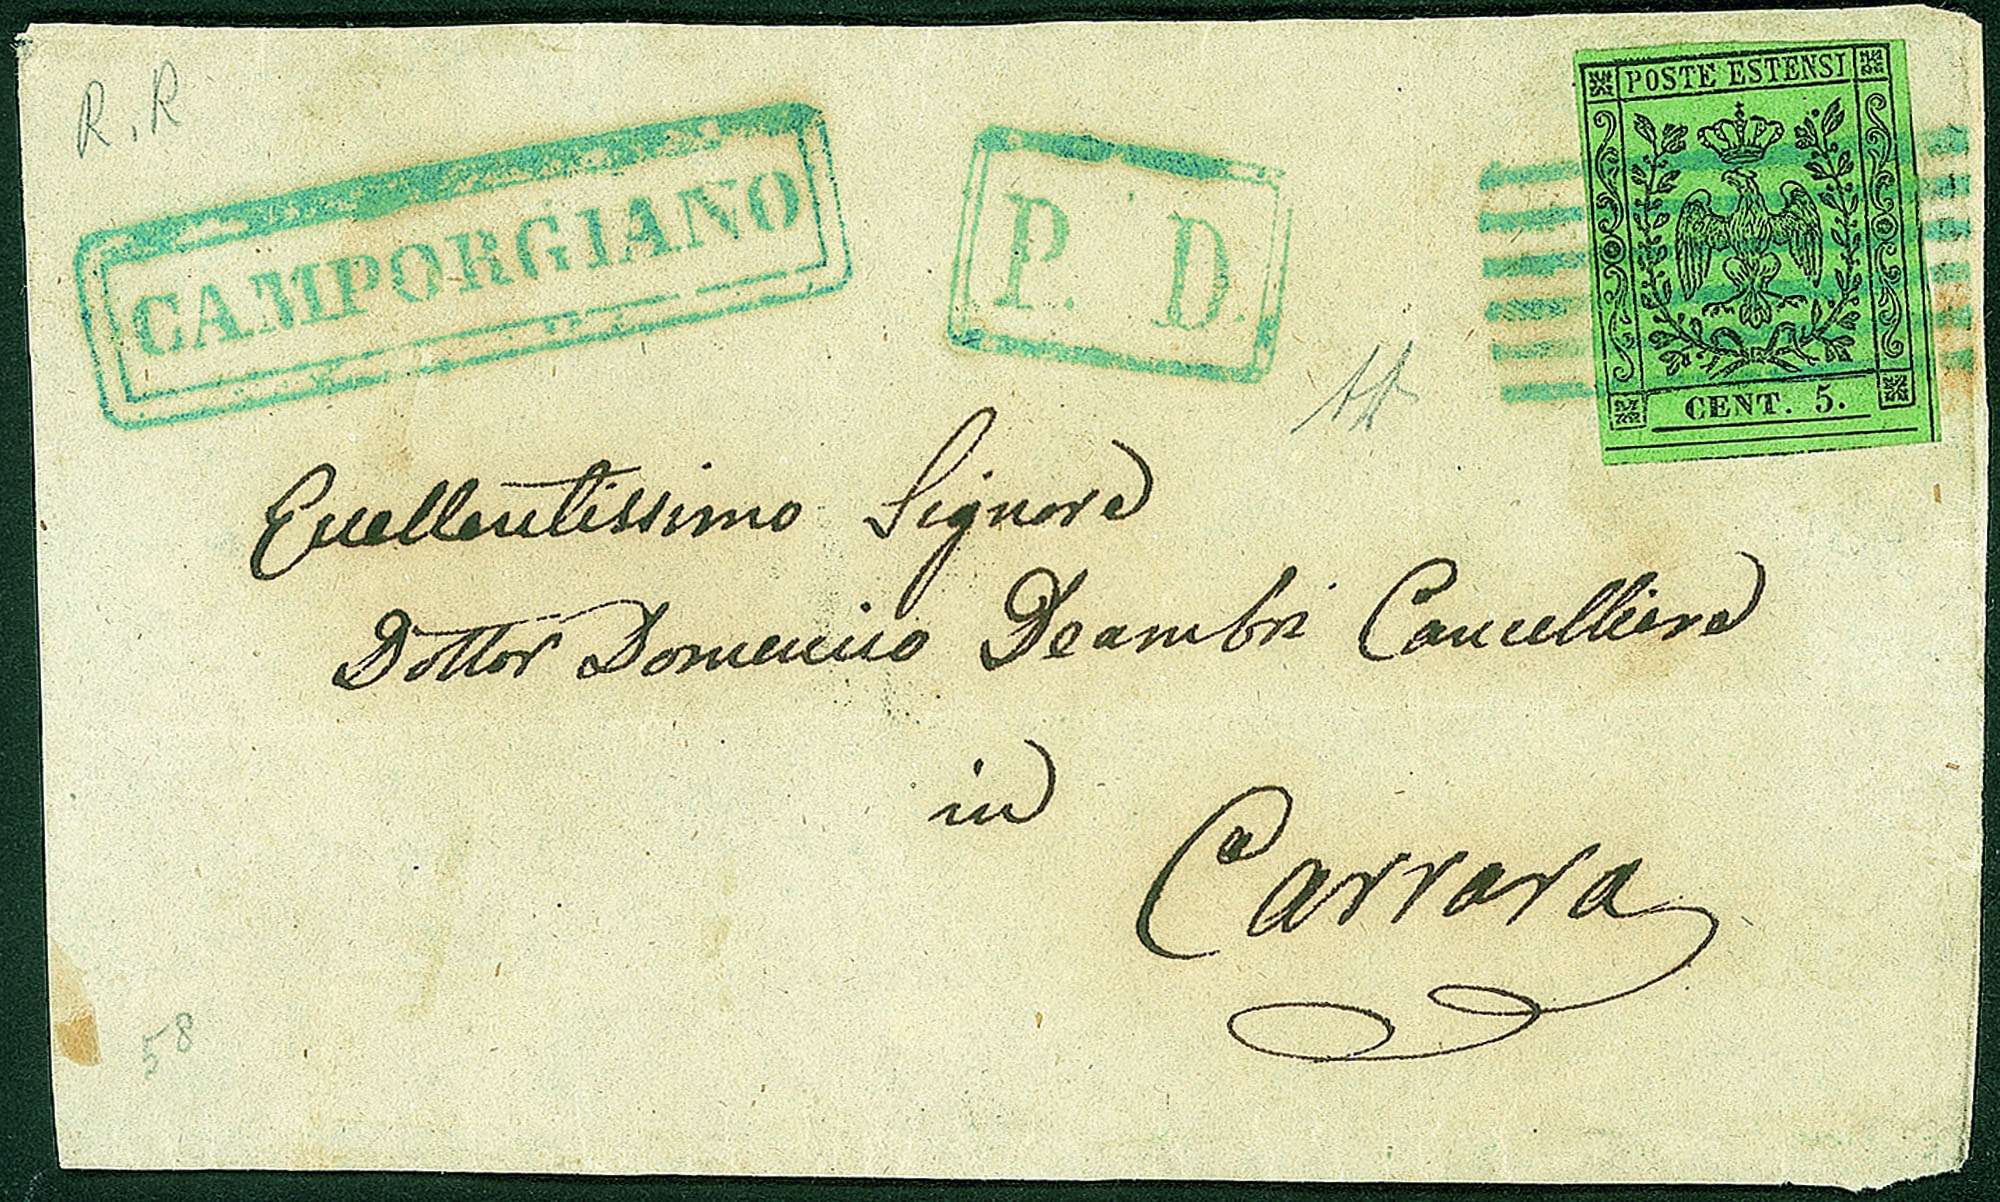 R. R
CAMPORGIANO
P. D.
POSTE ESTENSI
CENT. 5.
Eccellentissimo Signore
Dottor Domenico Deambri Cancelliere
in
Carrara
58